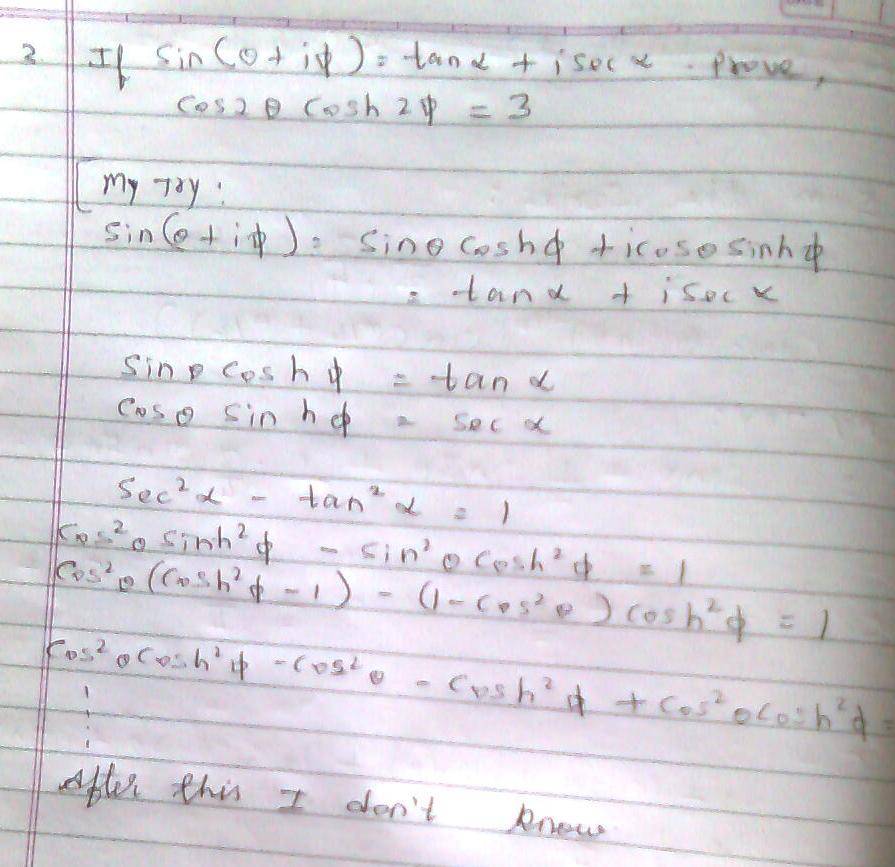 2 If sin(θ + iφ) = tanα + i sec α . Prove,
cos2θ cosh 2φ = 3
My Try :
sin(θ + iφ) = sinθ coshφ + icosθ sinhφ
= tanα + i sec α
sinθ coshφ = tanα
cosθ sinhφ = sec α
sec²α - tan²α = 1
cos²θ sinh²φ - sin²θ cosh²φ = 1
cos²θ (cosh²φ - 1) - (1 - cos²θ) cosh²φ = 1
cos²θ cosh²φ - cos²θ - cosh²φ + cos²θ cosh²φ =
After this I don't know